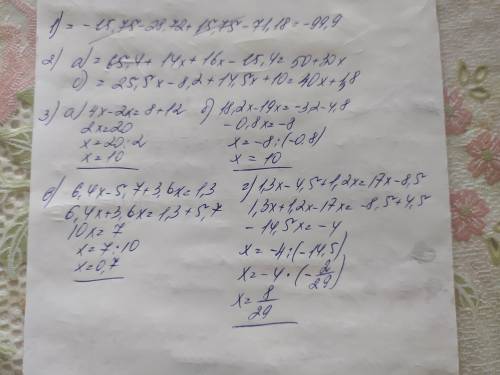 1) = -15,75-28,72+15,75-71,18=-99,9
2) а) = 65,4+14x+16x-15,4=50+30x
б) = 25,5x-8,2+14,5x+10=40x+1,8
3) а) 4x-2x=8+12
2x=20
x=20:2
x=10
б) 18,2x-19x=-3,2-4,8
-0,8x=-8
x=-8:(-0,8)
x=10
в) 6,4x-5,7+3,6x=1,3
6,4x+3,6x=1,3+5,7
10x=7
x=7:10
x=0,7
г) 1,3x-4,5+1,2x=17x-8,5
1,3x+1,2x-17x=-8,5+4,5
-14,5x=-4
x=-4:(-14,5)
x=-4·(-2/29)
x=8/29